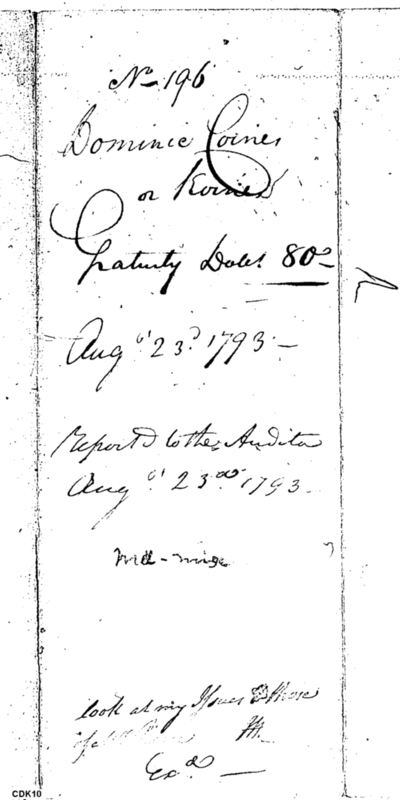 No 196
Dominic Coines
or Koines
Gratuity Dolls 80
Augst 23d 1793
Reportd to the Auditor
Augst 23d 1793
look at my Issues & those
Exd
CDK10